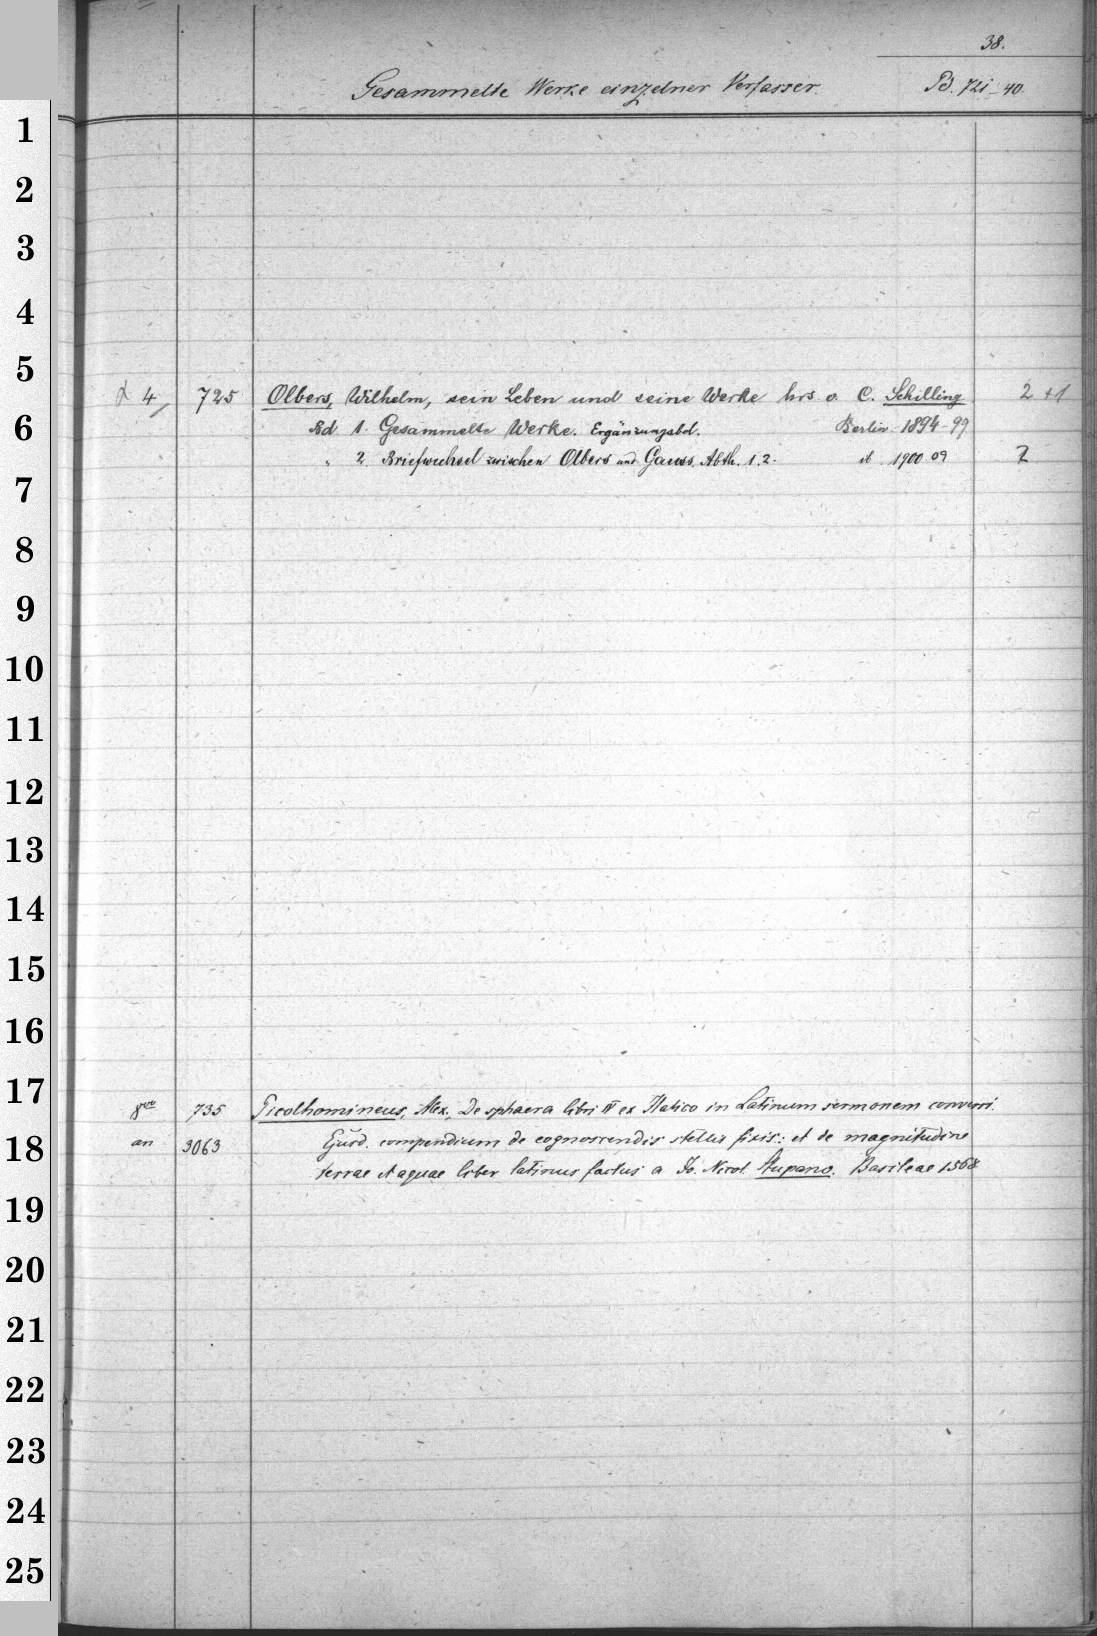 38.
Gesammelte Werke einzelner Verfasser. B. 721-40.
1
2
3
4
5
4 725 Olbers, Wilhelm, sein Leben und seine Werke hrs. v. C. Schilling 2 +1
6 Bd 1. Gesammelte Werke. Ergänzungsbd. Berlin 1894-99
" 2. Briefwechsel zwischen Olbers und Gauss. Abth. 1.2. ib. 1900 09 2
7
8
9
10
11
12
13
14
15
16
17
8vo 735 Picolhomineus, Alex., De sphaera libri IV ex Italico in Latinum sermonem conversi.
18 an 3063 Ejusd. compendium de cognoscendis stellis fixis: et de magnitudine
terrae et aquae liber latinus factus a Jo. Nicol Stupano. Basileae 1568
19
20
21
22
23
24
25